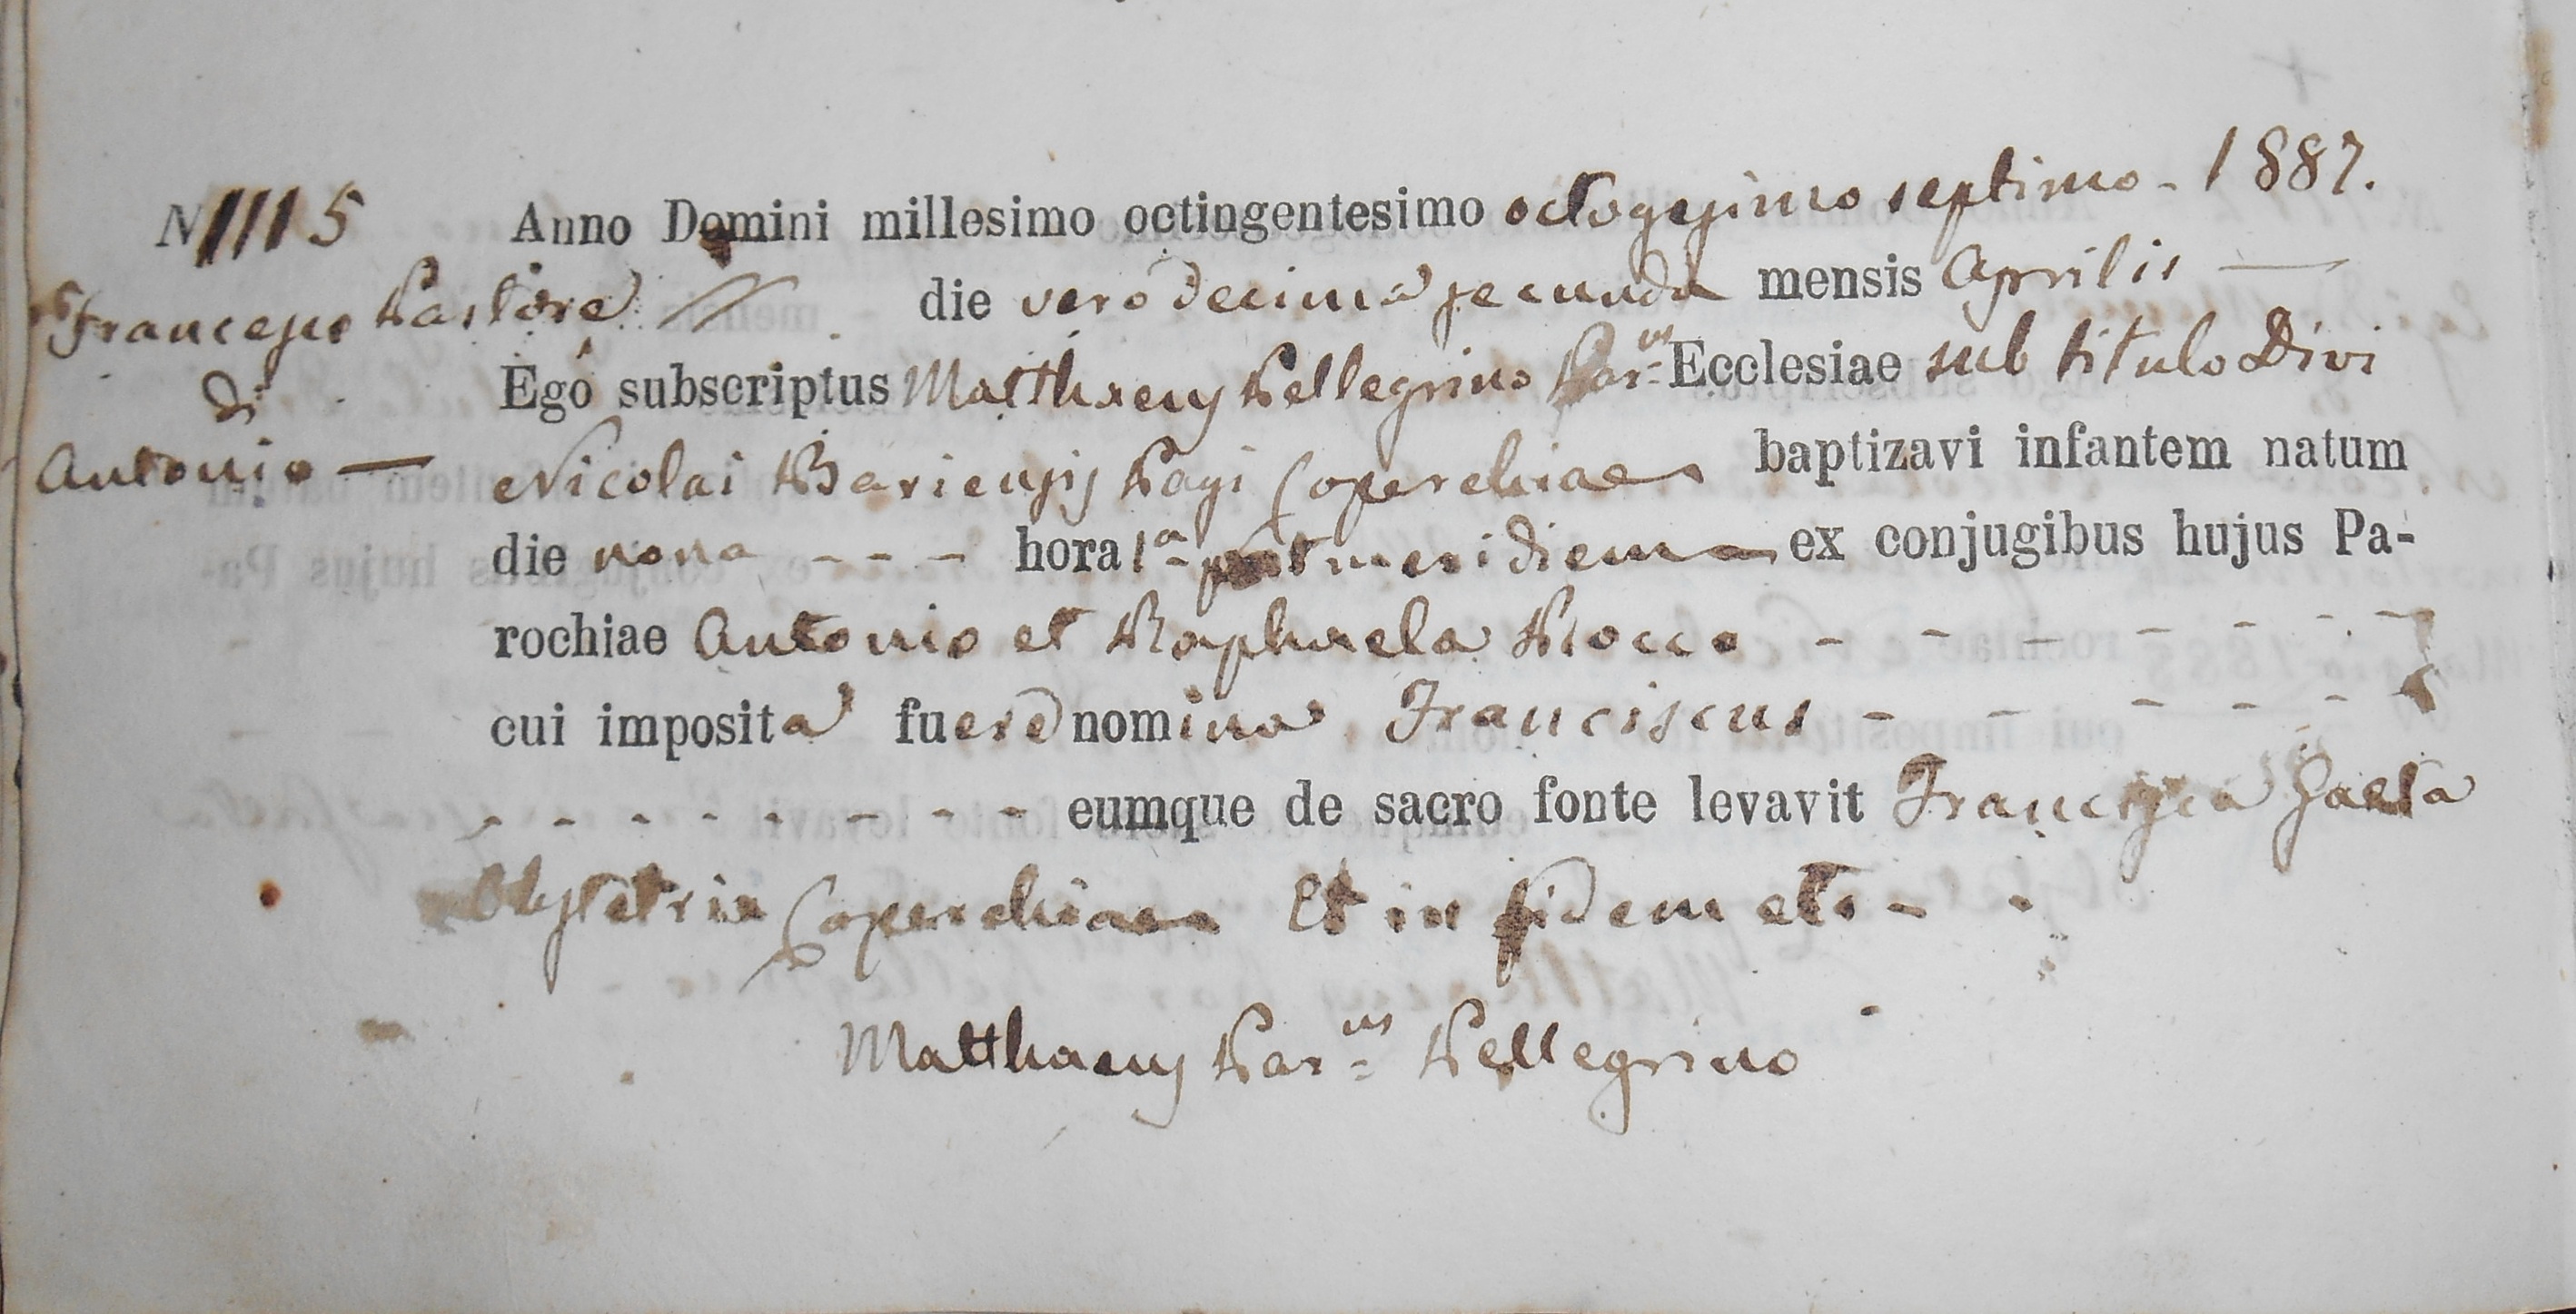 N 5
Anno Domini millesimo octingentesimo octogesimo septimo - 1887.
Francesco Pastore
di
Antonio —
die vero decima secunda mensis Aprilis —
Ego subscriptus Matthaeus Pellegrino Par.us Ecclesiae sub titulo Divi
Nicolai Bariensis Pagi Coperchiae baptizavi infantem natum
die nona - - - hora 1a post meridiem ex conjugibus hujus Pa-
rochiae Antonio et Raphaela Rocco - - - - - - -
cui imposita fuere nomina Franciscus - - - - - -
- - - - - - - - eumque de sacro fonte levavit Francisca Gaeta
Obstetrix Coperchiae Et in fidem etc -
Matthaeus Par.us Pellegrino